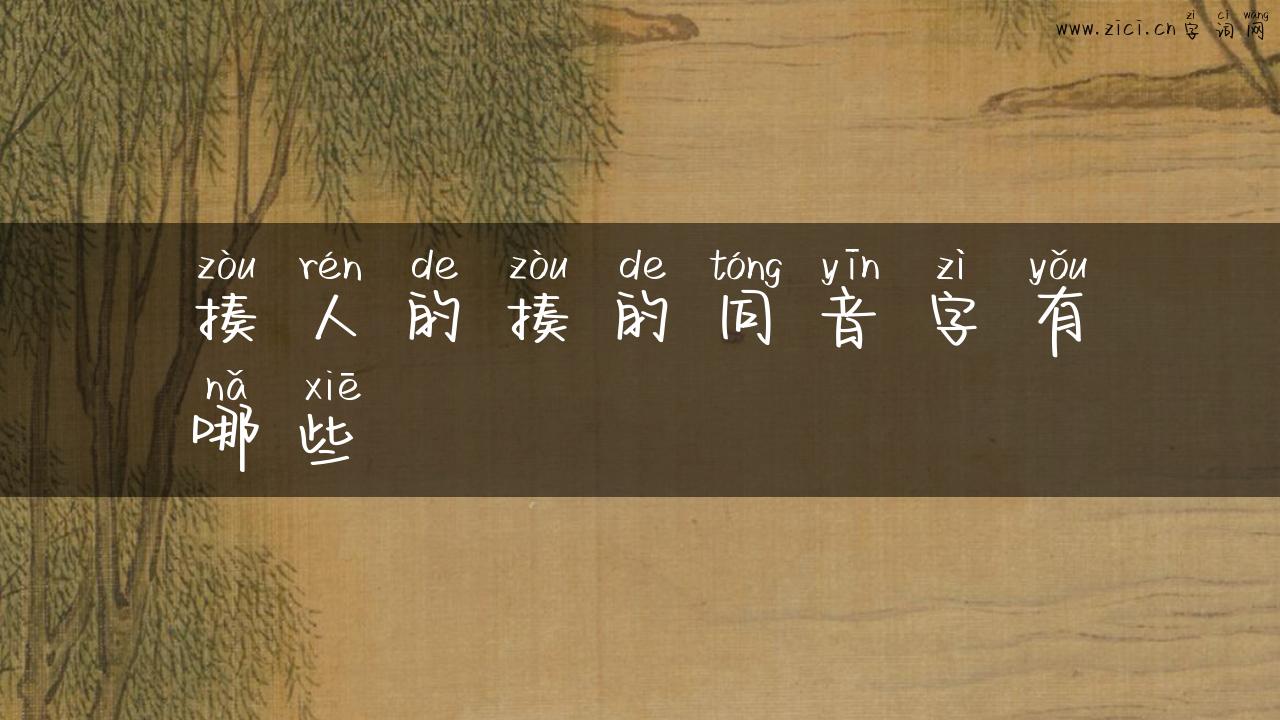 zì cí wǎng
www.zici.cn字词网
zòu rén de zòu de tóng yīn zì yǒu
揍人的揍的同音字有
nǎ xiē
哪些